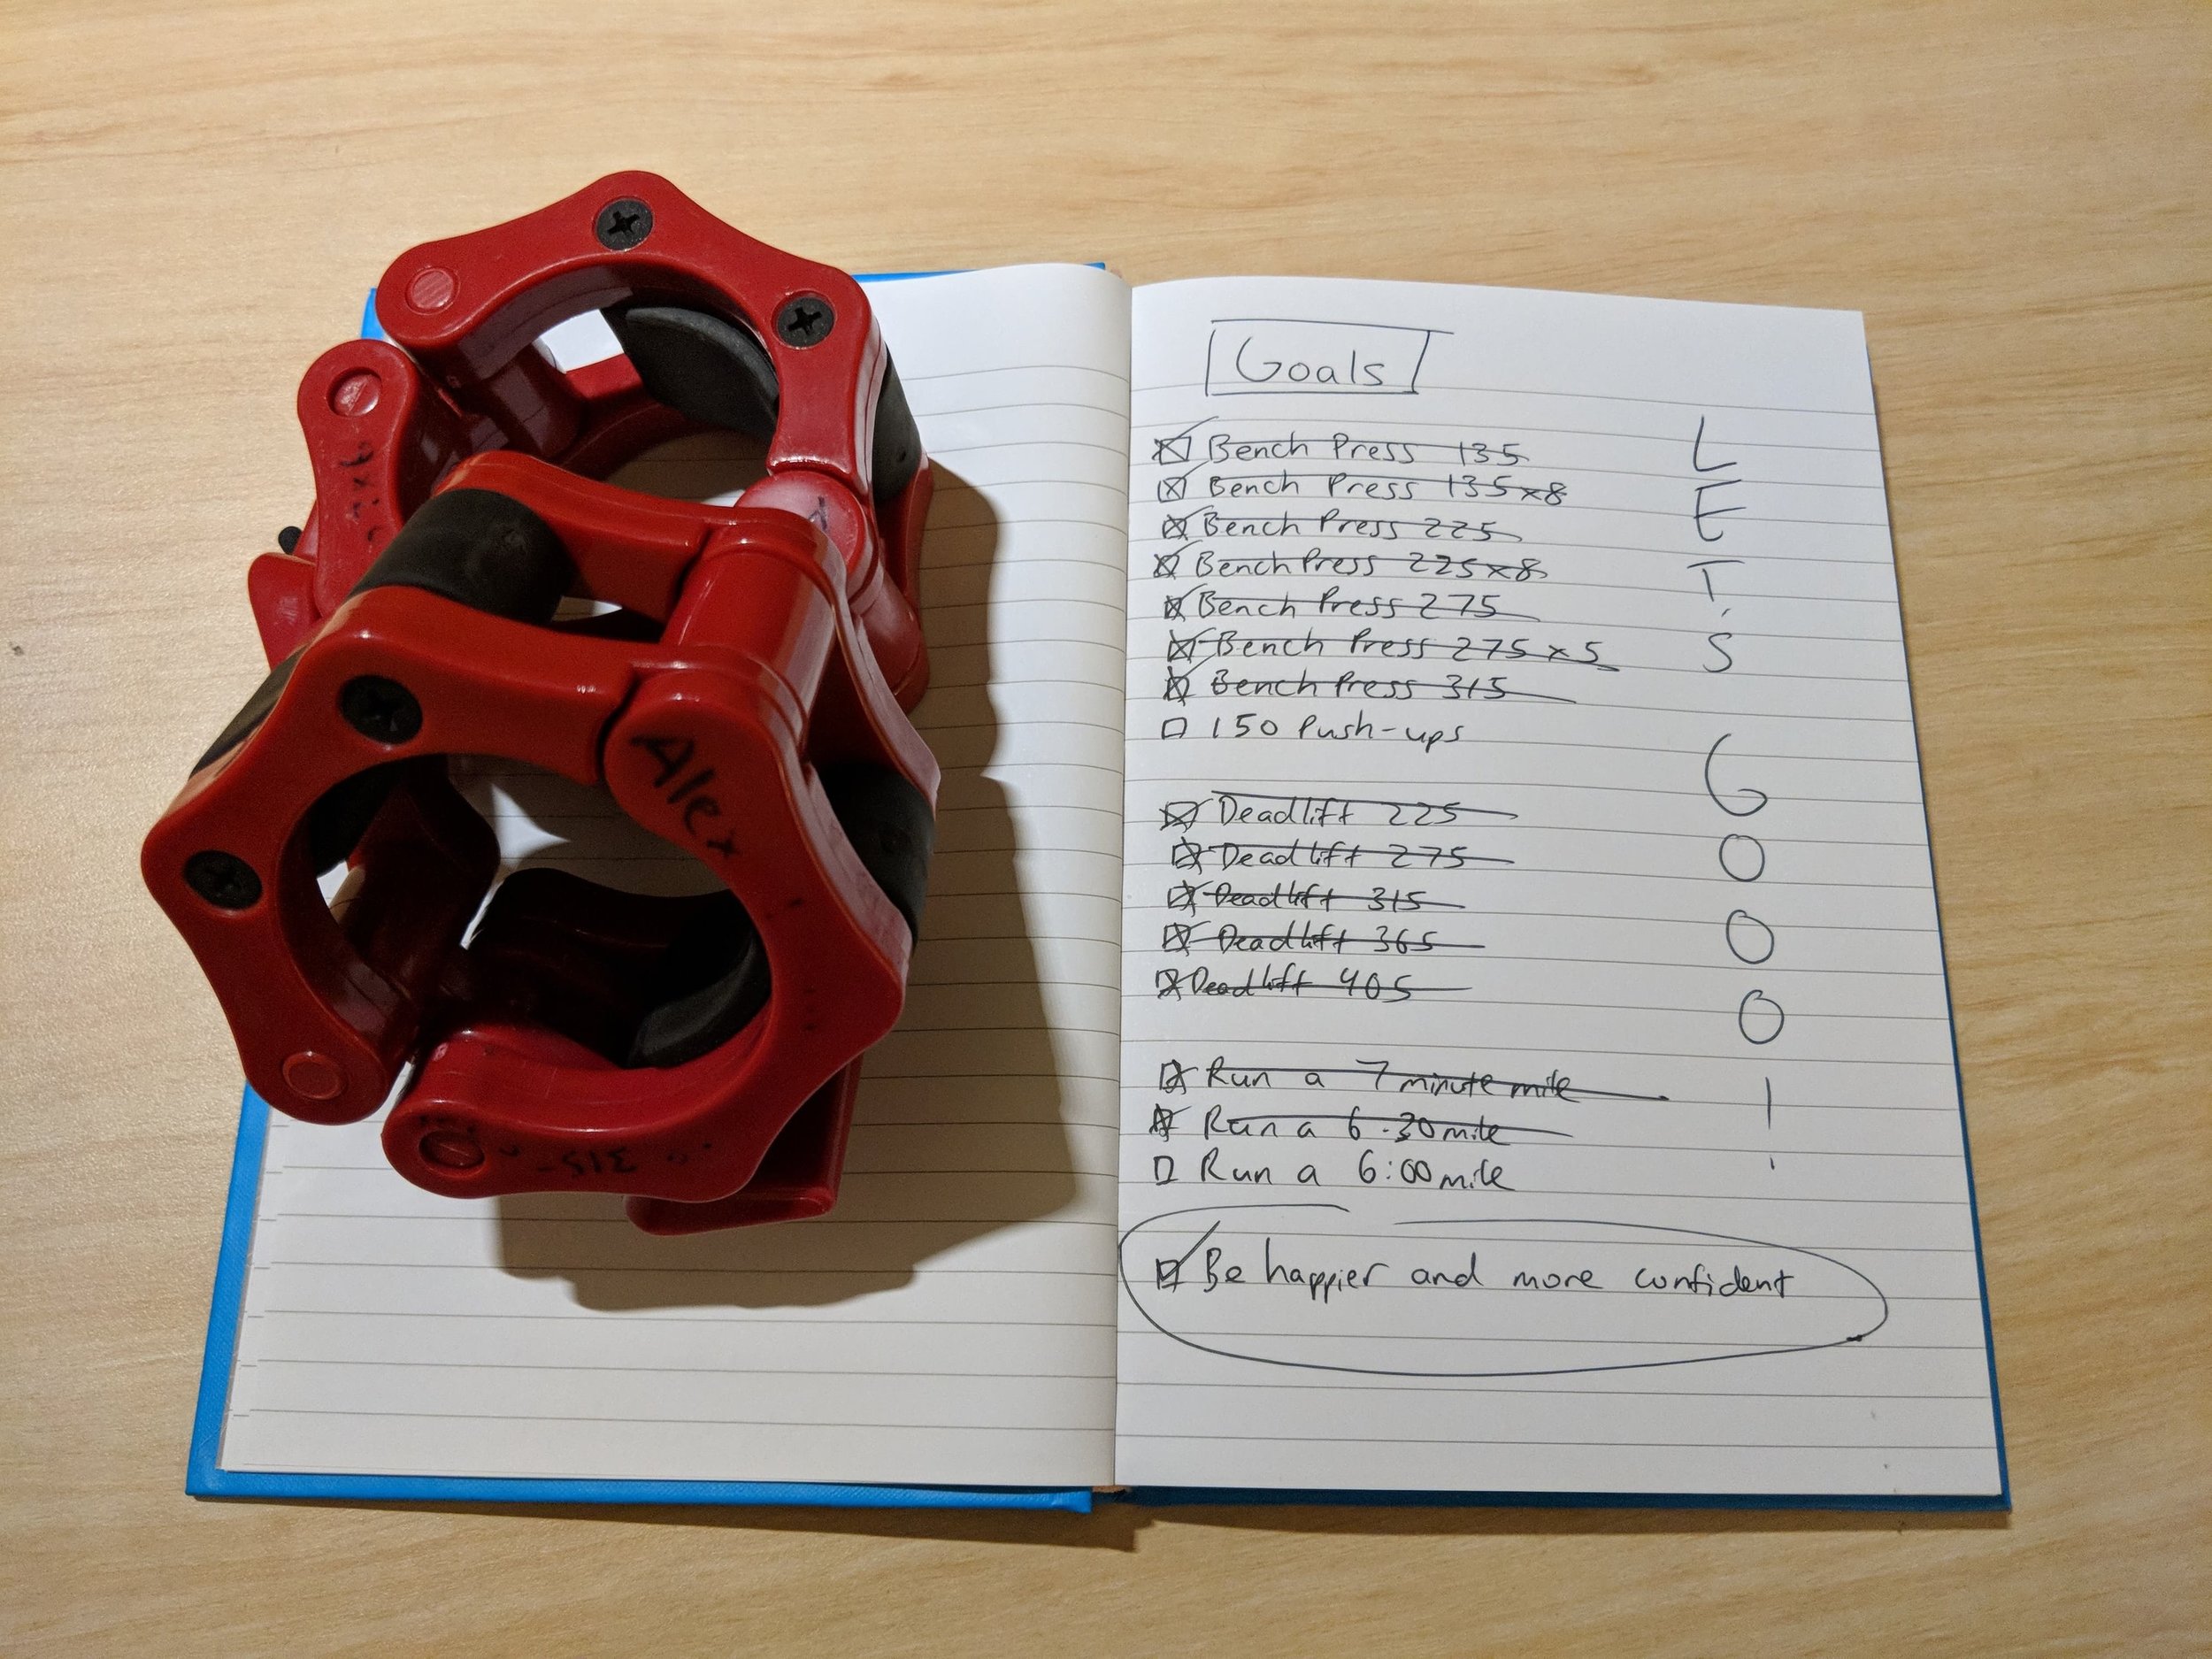 Alex
315
Goals
Bench Press 135
Bench Press 135x8
Bench Press 225
Bench Press 225x8
Bench Press 275
Bench Press 275x5
Bench Press 315
150 Push-ups
Deadlift 225
Deadlift 275
Deadlift 315
Deadlift 365
Deadlift 405
Run a 7 minute mile
Run a 6:30 mile
Run a 6:00 mile
Be happier and more confident
L
E
T
'
S
G
O
O
O
!